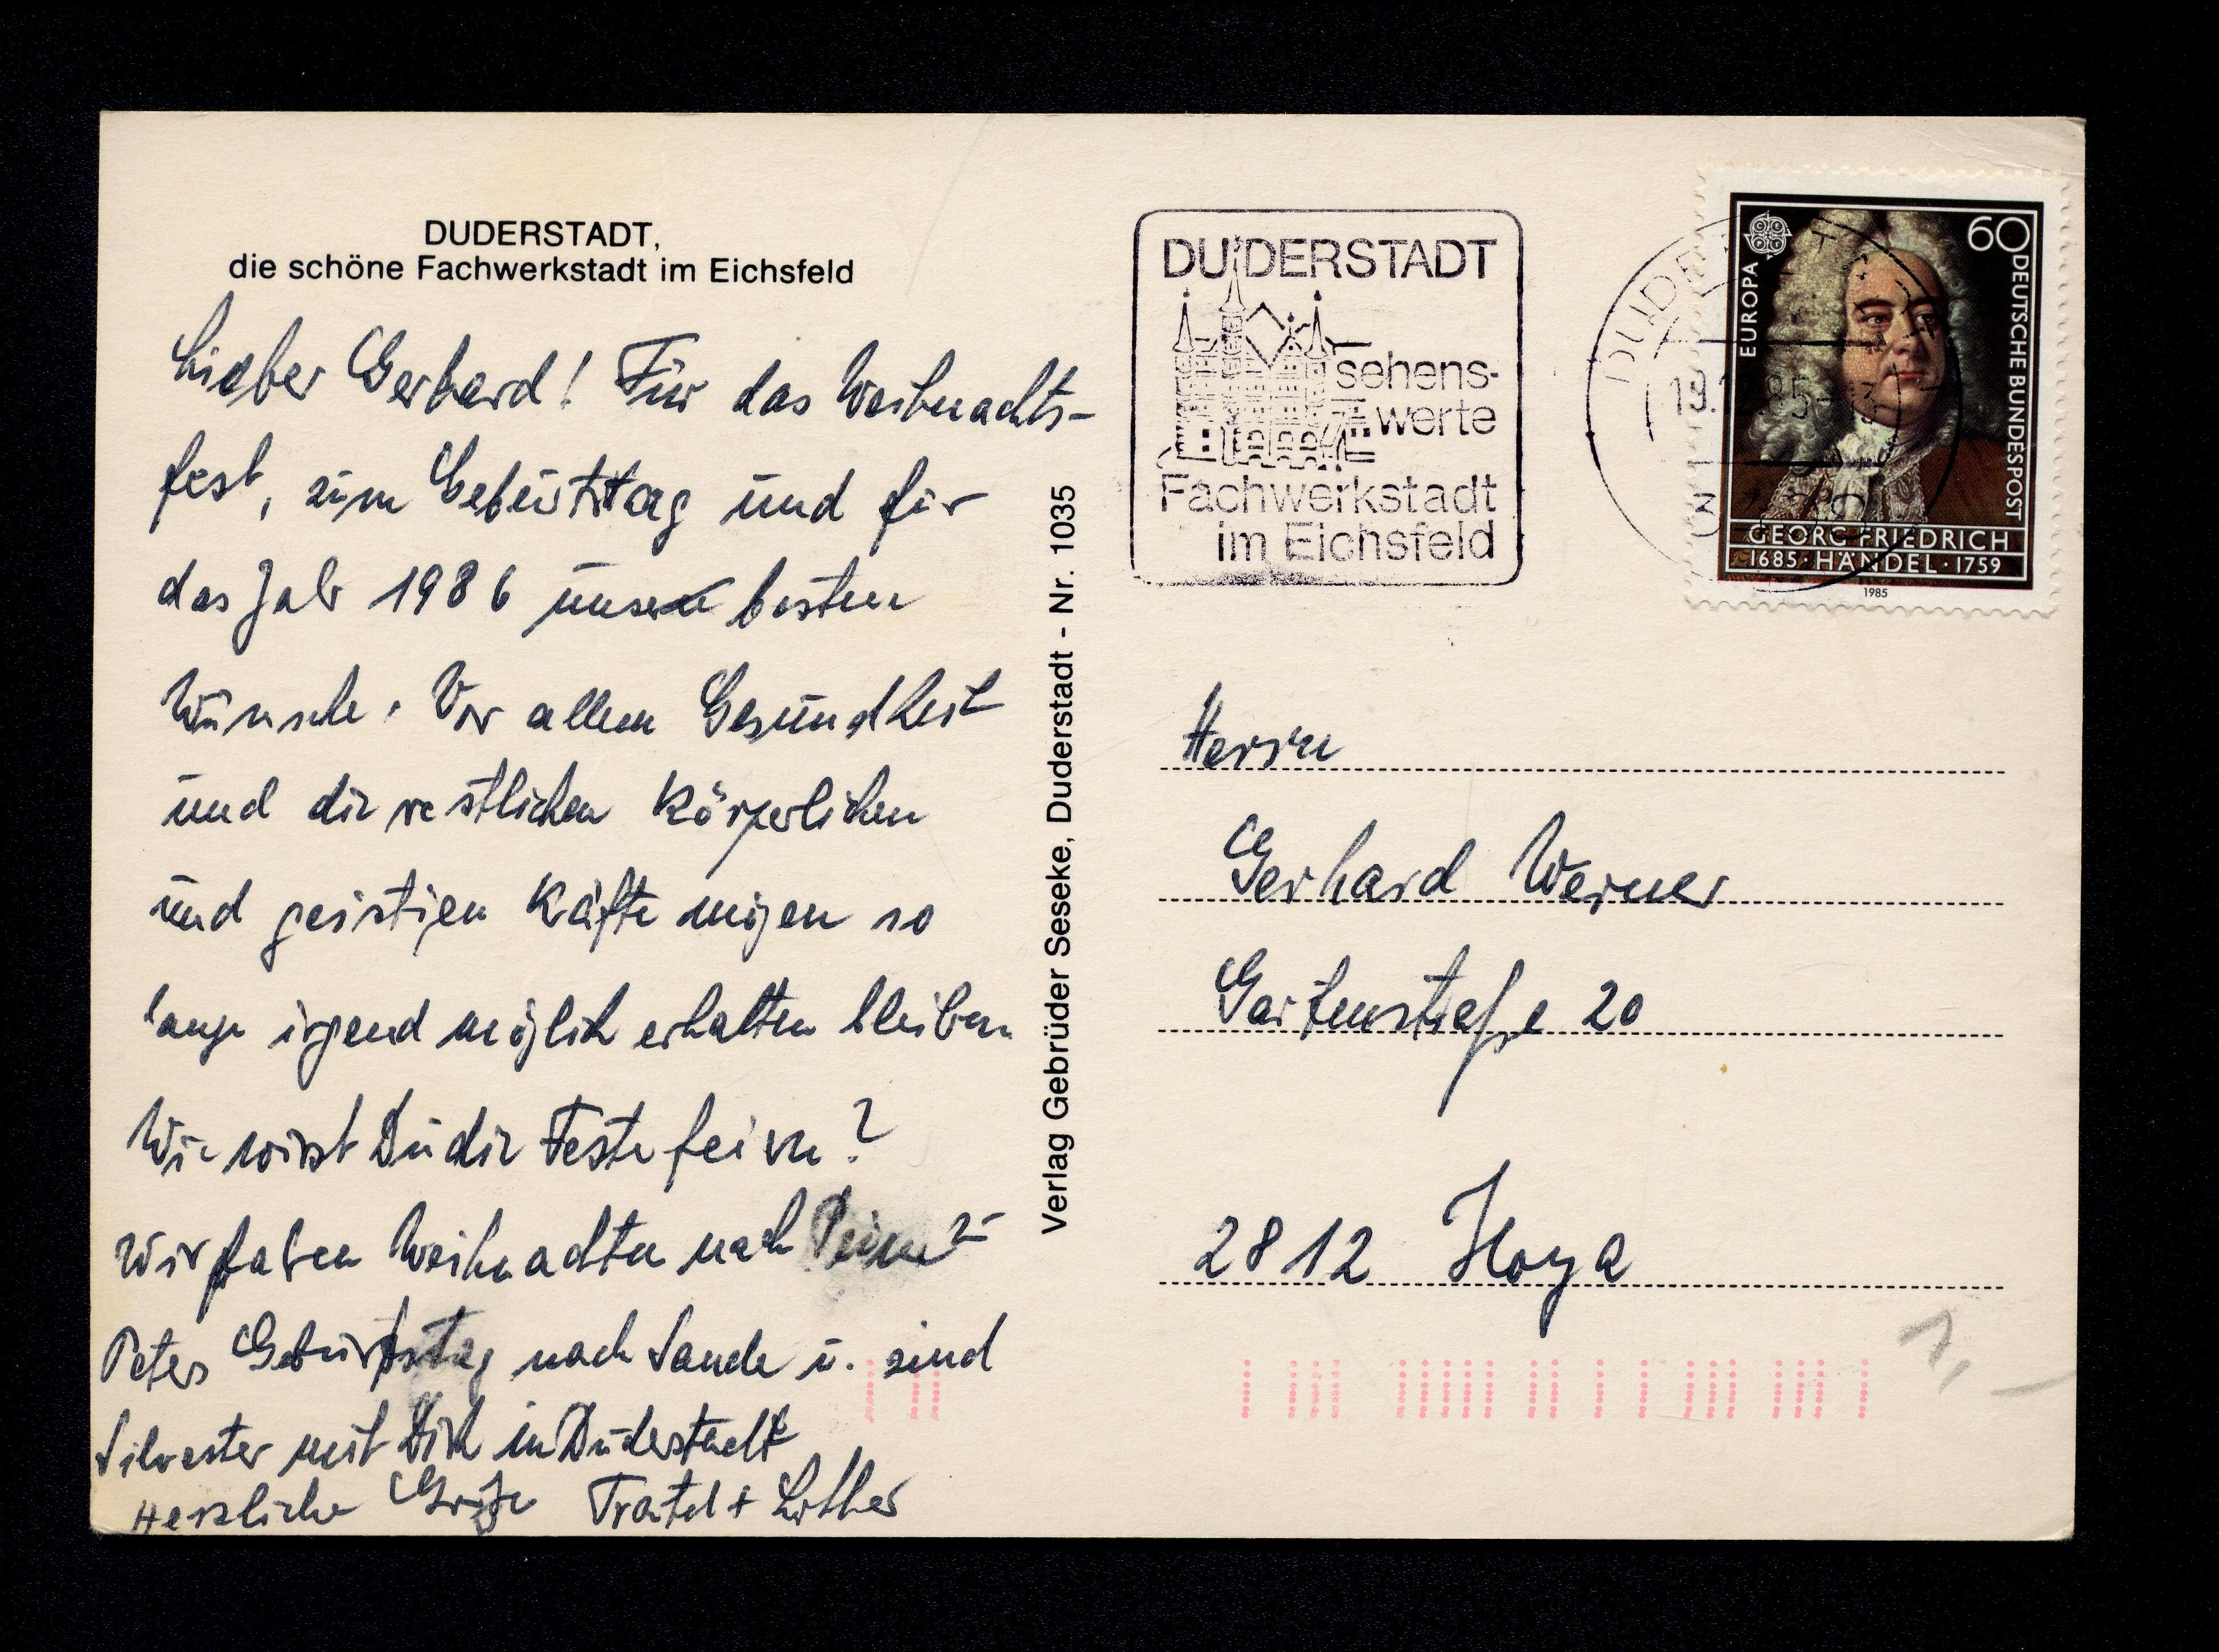 DUDERSTADT,
die schöne Fachwerkstadt im Eichsfeld
Lieber Gerhard! Für das Weihnachts-
fest, zum Geburtstag und für
das Jahr 1986 unsere besten
Wünsche. Vor allem Gesundheit
und die restlichen körperlichen
und geistigen Käfte mögen so
lange irgend möglich erhalten bleiben
Wie wirst Du die Feste feiern?
Wir fahren Weihnachten nach Peine
Peters Geburtstag nach Sande u. sind
Silvester mit Dirk in Duderstadt
Herzliche Grüße Trautel + Lothar
Verlag Gebrüder Seseke, Duderstadt - Nr. 1035
DUDERSTADT
sehens-
werte
Fachwerkstadt
im Eichsfeld
EUROPA
60
DEUTSCHE BUNDESPOST
GEORG FRIEDRICH
1685·HÄNDEL·1759
1985
Herrn
Gerhard Werner
Gartenstraße 20
2812 Hoya